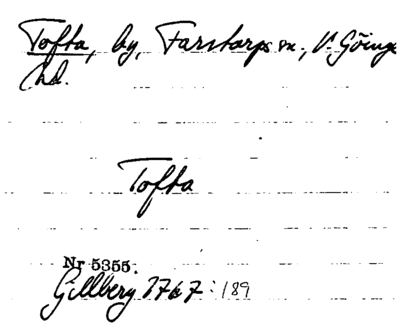 Tofta, by, Farstorps sn., V. Göinge
hd.
Tofta
Nr 5355.
Gillberg 1767: 189